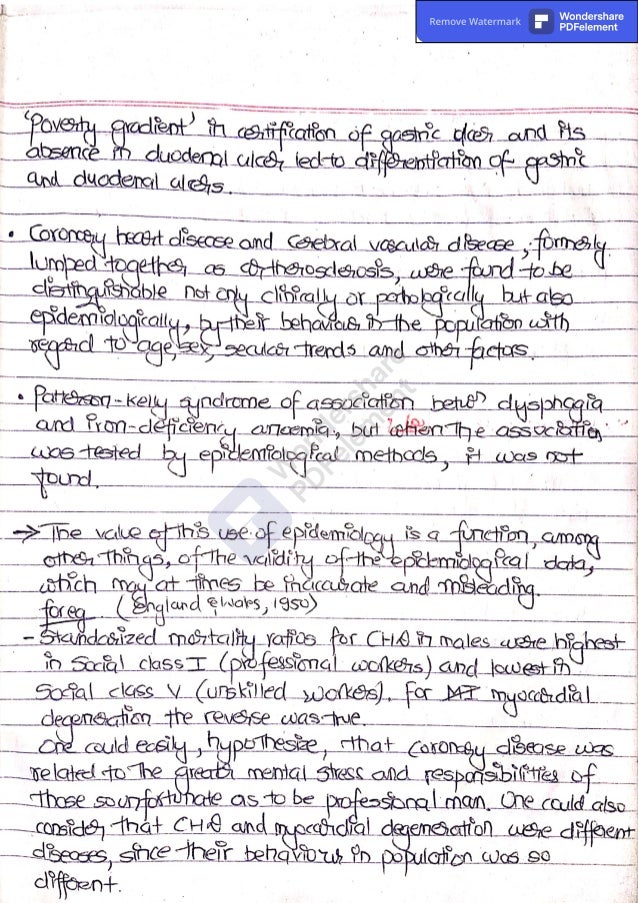 Remove Watermark
Wondershare
PDFelement
'Poverty gradient' in certification of gastric ulcer and its
absence in duodenal ulcer led to differentiation of gastric
and duodenal ulcers.
• Coronary heart disease and cerebral vascular disease, formerly
lumped together as artherosclerosis, were found to be
distinguishable not only clinically or pathologically but also
epidemiologically, by their behaviour in the population with
regard to age, sex, secular trends and other factors.
• Patterson-Kelly syndrome of association betwn dysphagia
and iron-deficiency anaemia, but when the association
was tested by epidemiological methods, it was not
found.
→ The value of this use of epidemiology is a function, among
other things, of the validity of the epidemiological data,
which may at times be inaccurate and misleading.
for eg (England & Wales, 1950)
- Standarized mortality ratios for CHD in males were highest
in Social class I (professional workers) and lowest in
Social class V (unskilled workers). For MI myocardial
degeneration the reverse was true.
One could easily, hypothesize, that coronary disease was
related to the greater mental stress and responsibilities of
those so unfortunate as to be professional man. One could also
consider that CHD and myocardial degeneration were different
diseases, since their behaviour in population was so
different.
Wondershare
PDFelement